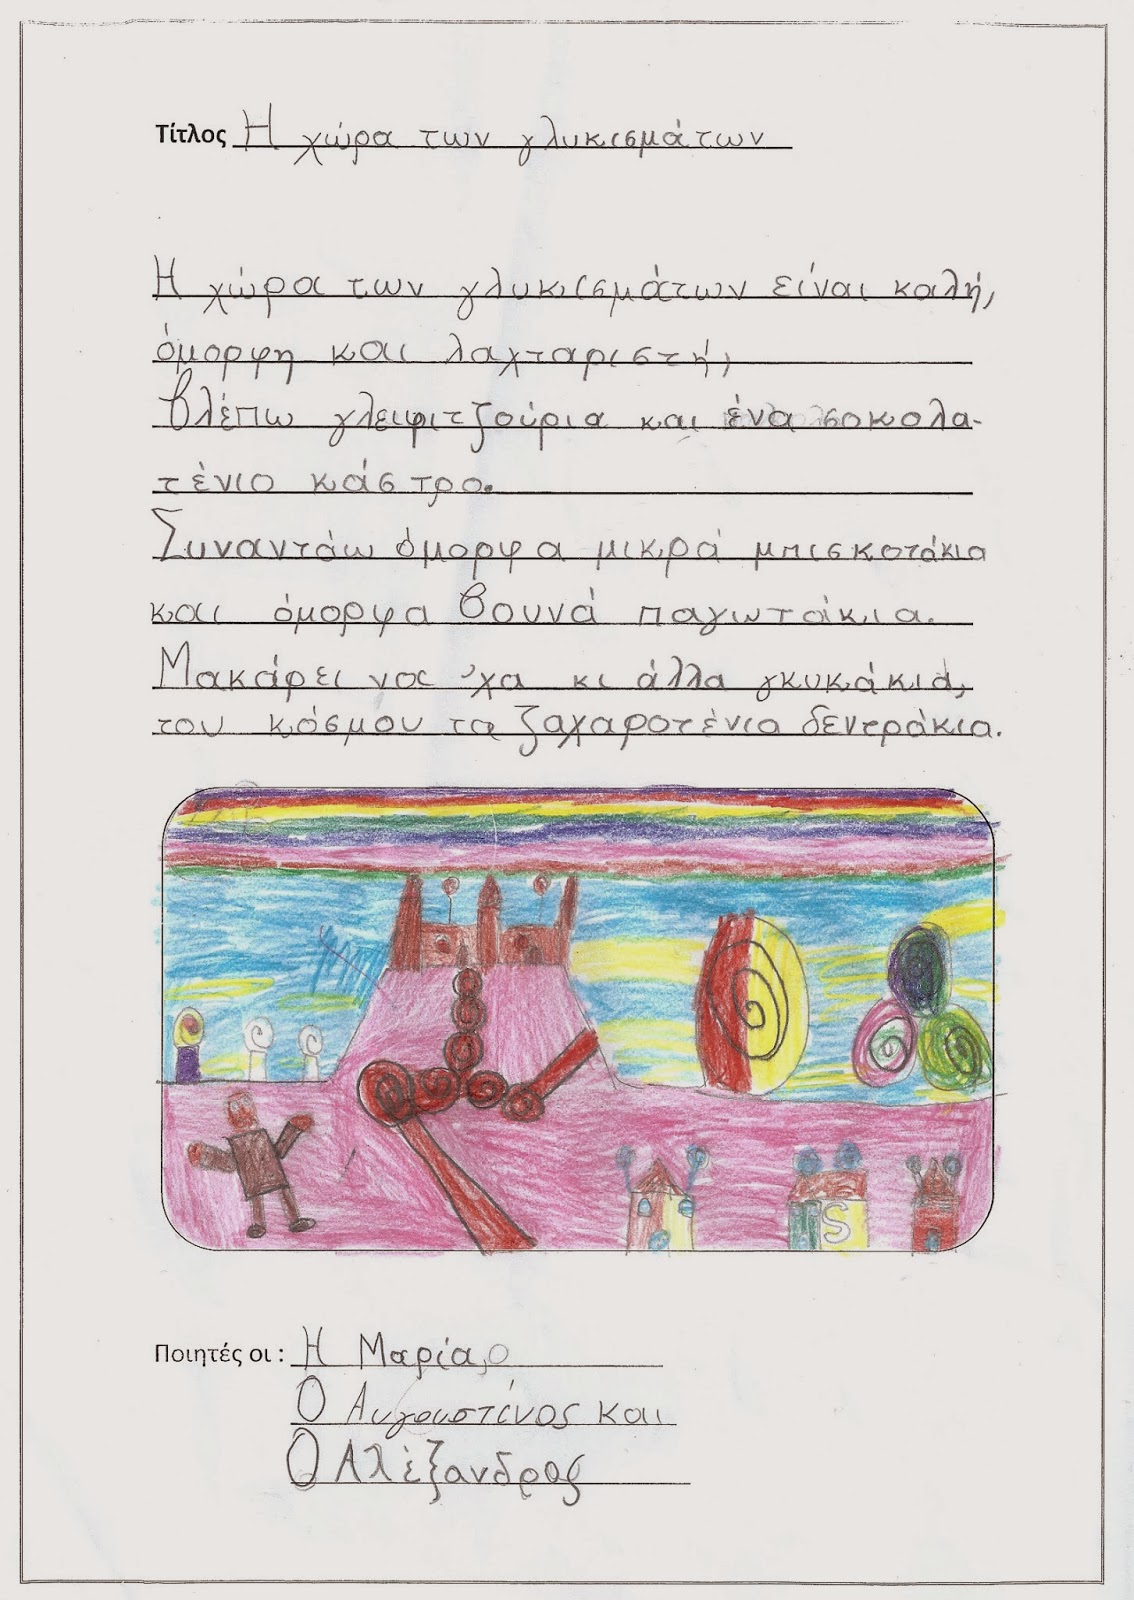 Τίτλος Η χώρα των γλυκισμάτων
Η χώρα των γλυκισμάτων είναι καλή,
όμορφη και λαχταριστή,
Βλέπω γλειφιτζούρια και ένα σοκολα-
τένιο κάστρο.
Συναντάω όμορφα μικρά μπισκοτάκια
και όμορφα βουνά παγωτάκια.
Μακάρει νας 'χα κι άλλα γκυκάκια,
του κόσμου τα ζαχαροτένια δεντράκια.
S
Ποιητές οι : Η Μαρία,ο
Ο Αυγουστίνος και
Ο Αλέξανδρος